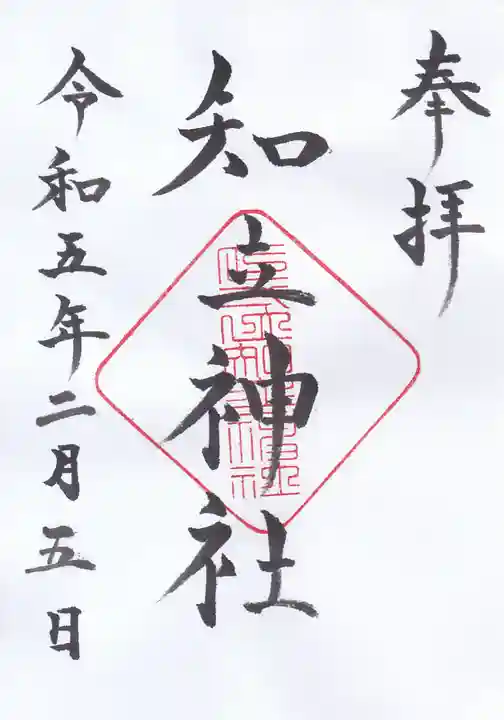 奉拝
知立神社
令和五年二月五日